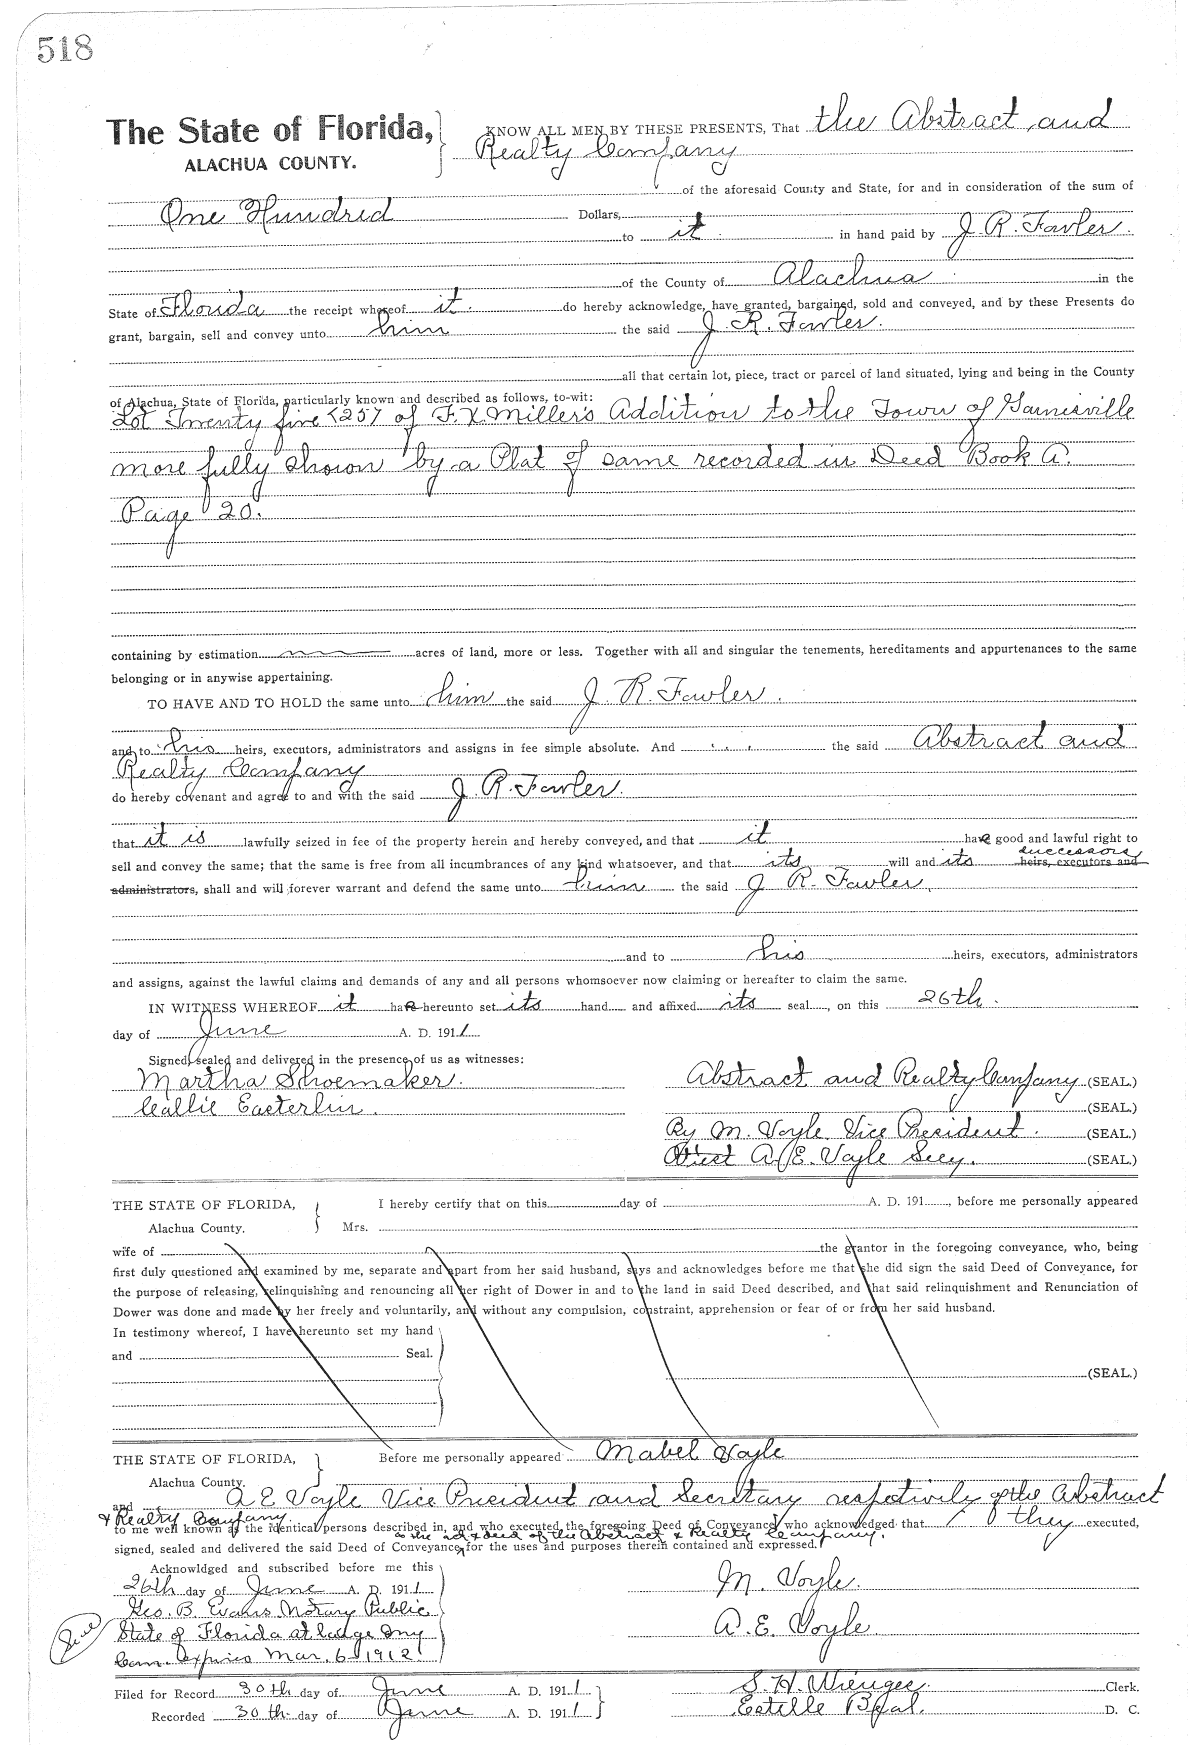 518
The State of Florida, KNOW ALL MEN BY THESE PRESENTS, That the Abstract and
ALACHUA COUNTY. Realty Company
of the aforesaid County and State, for and in consideration of the sum of
One Hundred Dollars,
to it in hand paid by J. R. Fowler.
of the County of Alachua in the
State of Florida the receipt whereof it do hereby acknowledge, have granted, bargained, sold and conveyed, and by these Presents do
grant, bargain, sell and convey unto him the said J. R. Fowler.
all that certain lot, piece, tract or parcel of land situated, lying and being in the County
of Alachua, State of Florida, particularly known and described as follows, to-wit:
Lot Twenty five (25) of F. X. Miller's Addition to the Town of Gainesville
more fully shown by a Plat of same recorded in Deed Book A.
Page 20.
containing by estimation acres of land, more or less. Together with all and singular the tenements, hereditaments and appurtenances to the same
belonging or in anywise appertaining.
TO HAVE AND TO HOLD the same unto him the said J. R. Fowler.
and to his heirs, executors, administrators and assigns in fee simple absolute. And the said Abstract and
Realty Company
do hereby covenant and agree to and with the said J. R. Fowler.
that it is lawfully seized in fee of the property herein and hereby conveyed, and that it have good and lawful right to
successors
sell and convey the same; that the same is free from all incumbrances of any kind whatsoever, and that its will and its heirs, executors and
administrators, shall and will forever warrant and defend the same unto him the said J. R. Fowler.
and to his heirs, executors, administrators
and assigns, against the lawful claims and demands of any and all persons whomsoever now claiming or hereafter to claim the same.
IN WITNESS WHEREOF it have hereunto set its hand and affixed its seal, on this 26th.
day of June A. D. 1911
Signed, sealed and delivered in the presence of us as witnesses:
Martha Shoemaker. Abstract and Realty Company (SEAL.)
Callie Easterlin. (SEAL.)
By M. Voyle Vice President. (SEAL.)
Attest A. E. Voyle Secy. (SEAL.)
THE STATE OF FLORIDA, I hereby certify that on this day of A. D. 191 , before me personally appeared
Alachua County. Mrs.
wife of the grantor in the foregoing conveyance, who, being
first duly questioned and examined by me, separate and apart from her said husband, says and acknowledges before me that she did sign the said Deed of Conveyance, for
the purpose of releasing, relinquishing and renouncing all her right of Dower in and to the land in said Deed described, and that said relinquishment and Renunciation of
Dower was done and made by her freely and voluntarily, and without any compulsion, constraint, apprehension or fear of or from her said husband.
In testimony whereof, I have hereunto set my hand
and Seal.
(SEAL.)
THE STATE OF FLORIDA, Before me personally appeared Mabel Voyle
Alachua County.
and A E Voyle Vice President and Secretary respectivily of the Abstract
& Realty Company.
to me well known as the identical persons described in, and who executed the foregoing Deed of Conveyance, who acknowledged that they executed,
as the act & deed of the Abstract & Realty Company.
signed, sealed and delivered the said Deed of Conveyance, for the uses and purposes therein contained and expressed.
Acknowldged and subscribed before me this
26th day of June A. D. 1911 M. Voyle.
Geo. B. Evans Notary Public
State of Florida at large my A. E. Voyle
Com. expires Mar. 6 1912.
Filed for Record 30th day of June A. D. 1911 Clerk.
Recorded 30th day of June A. D. 1911 Estelle D. C.